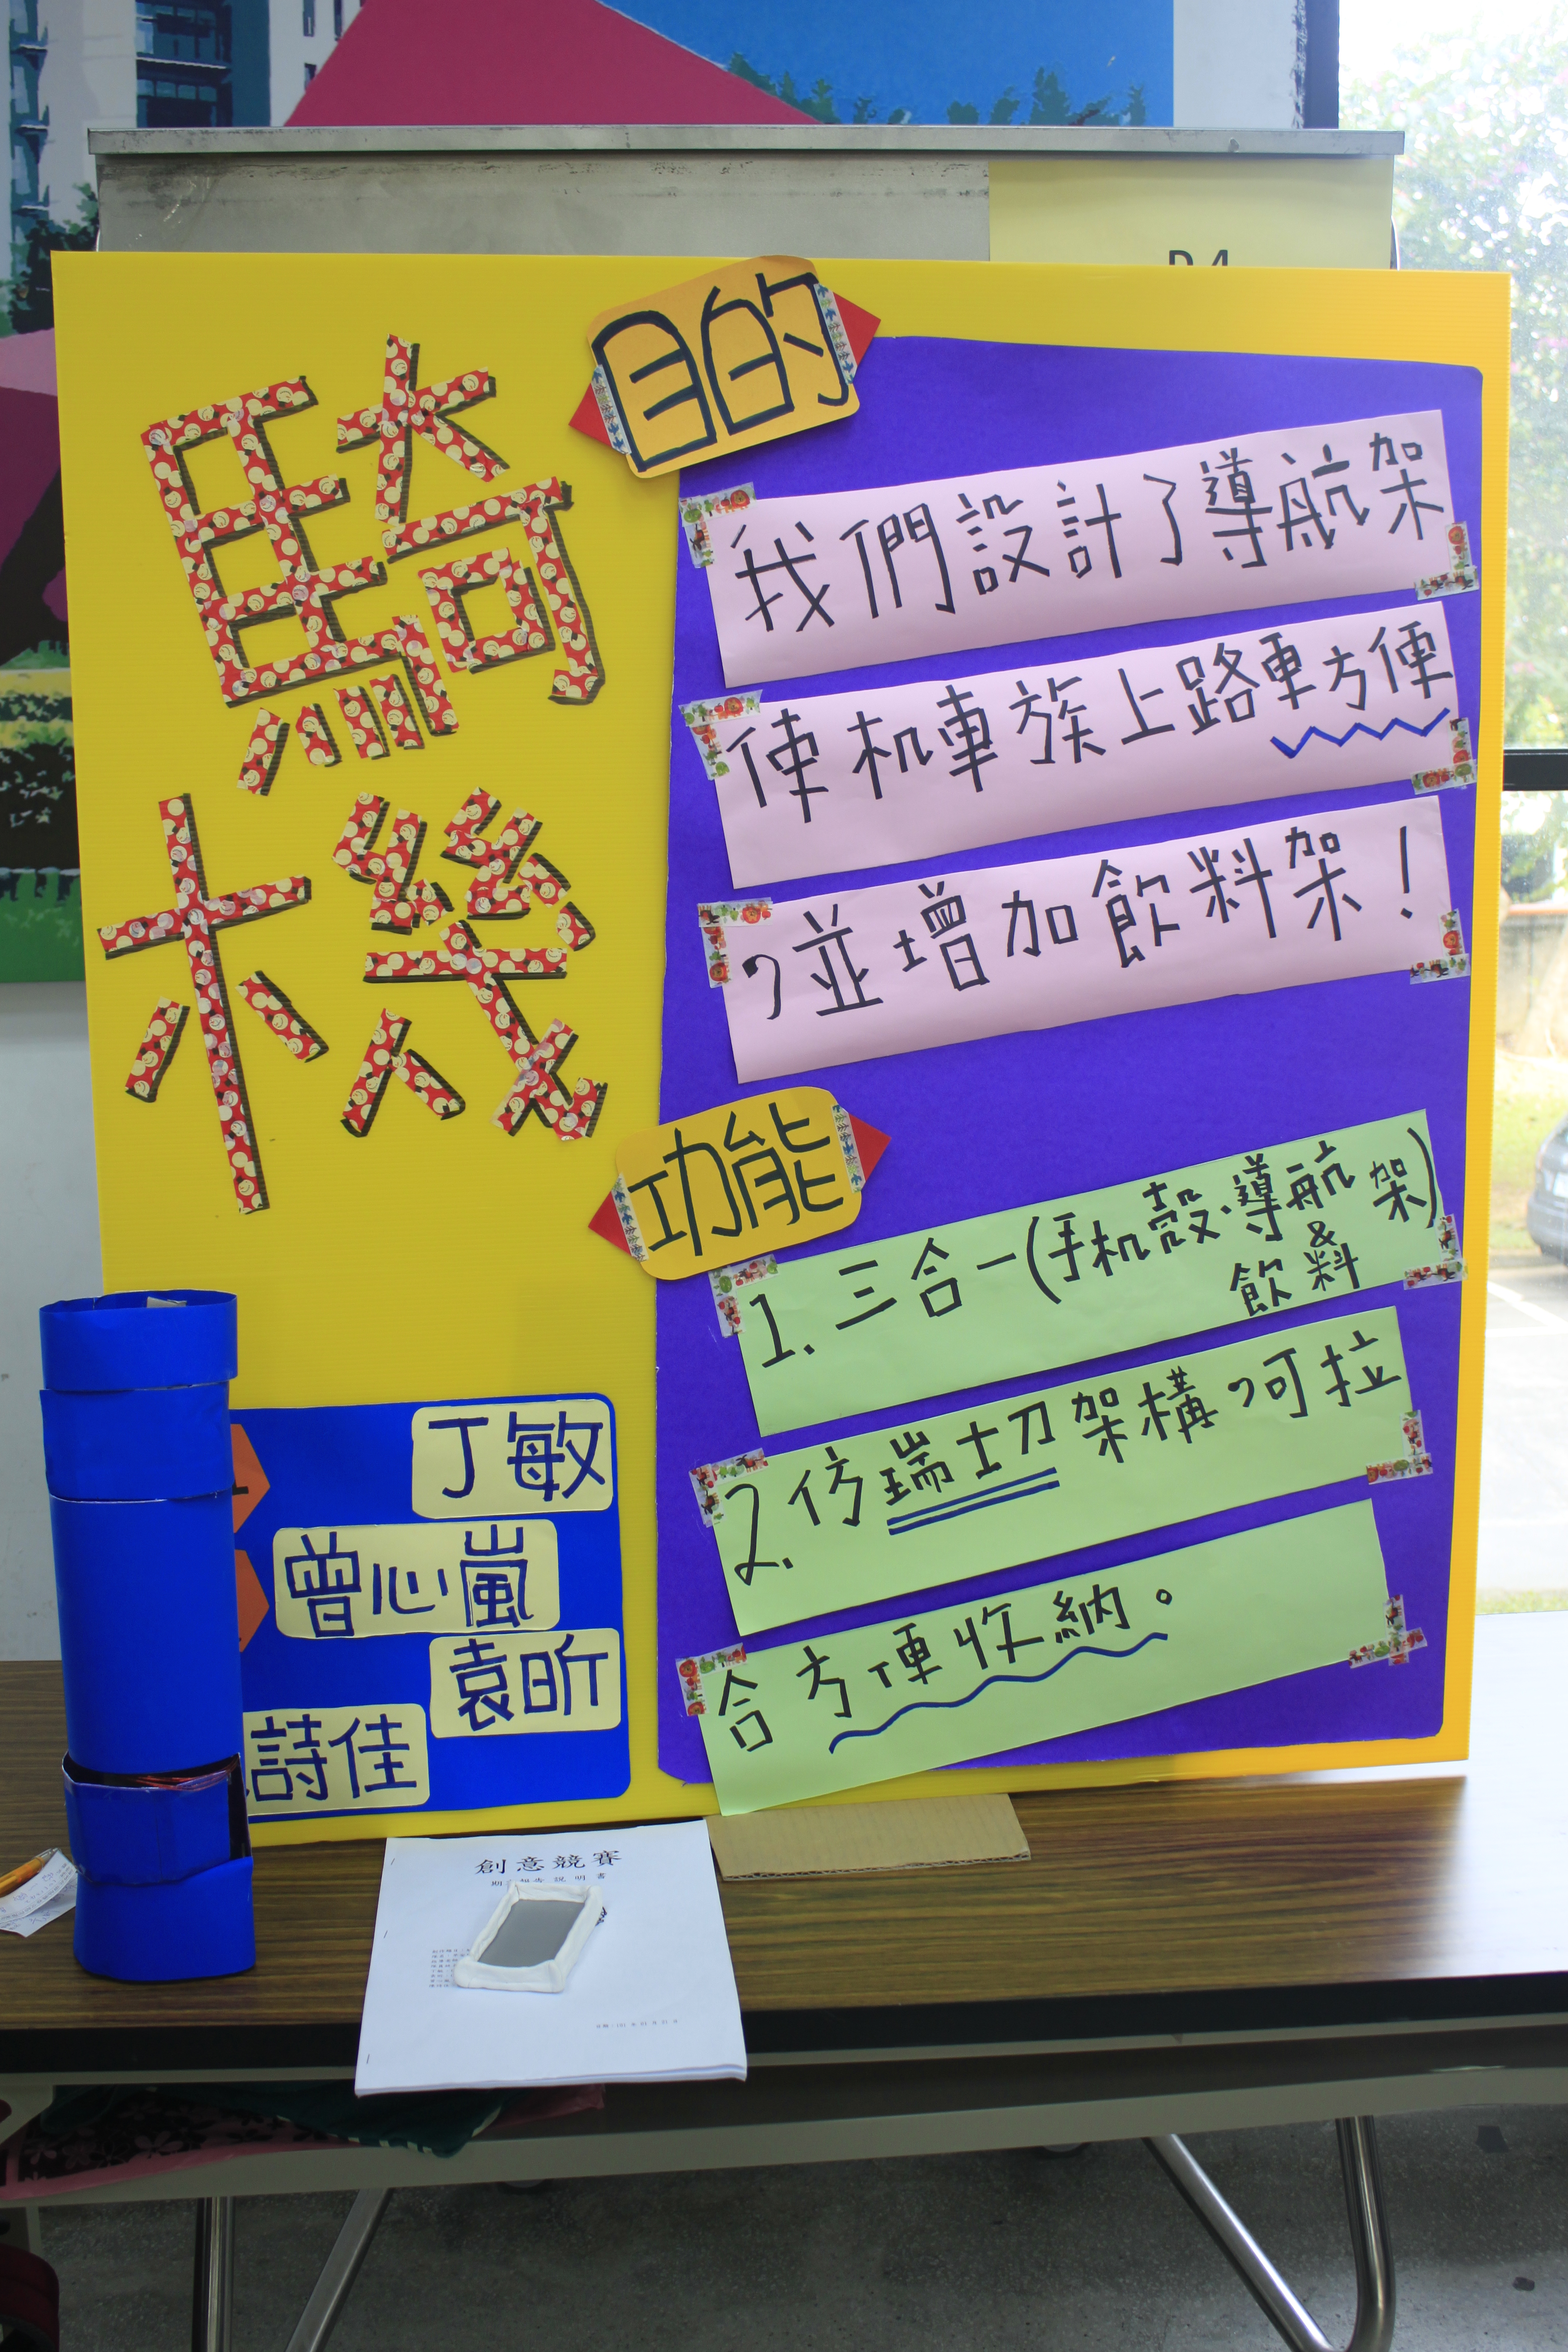 騎
機
目的
我們設計了導航架
使机車族上路更方便
，並增加飲料架！
功能
1. 三合一(手机殼、導航 架)
&
飲料
2. 仿瑞士刀架構，可拉
合方便收納。
丁敏
曾心嵐
袁昕
詩佳
創意競賽